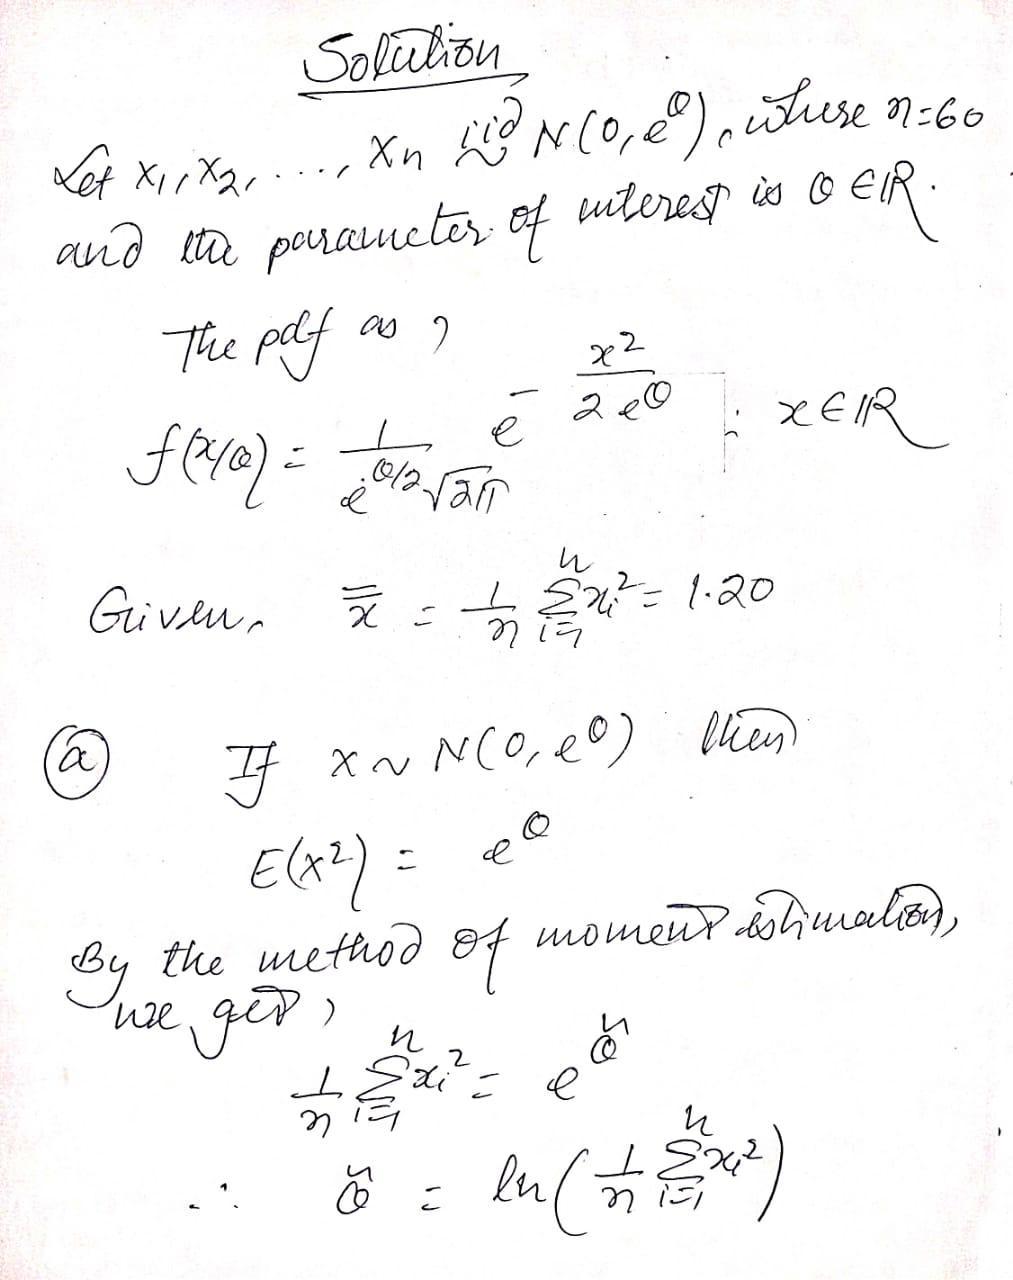 Solution
Let x₁, x₂, ...., xₙ iid ~ N(0, e^θ), where n=60
and the parameter of interest is θ ∈ ℝ.
The pdf as,
f(x/θ) = 1/(e^(θ/2) √2π) e^(-x²/(2e^θ)) ; x ∈ ℝ
Given, x̿ = 1/n Σ_{i=1}^{n} xᵢ² = 1.20
(a) If x ~ N(0, e^θ) then
E(x²) = e^θ
By the method of moment estimation,
we get,
1/n Σ_{i=1}^{n} xᵢ² = e^θ̌
∴ θ̌ = ln(1/n Σ_{i=1}^{n} xᵢ²)